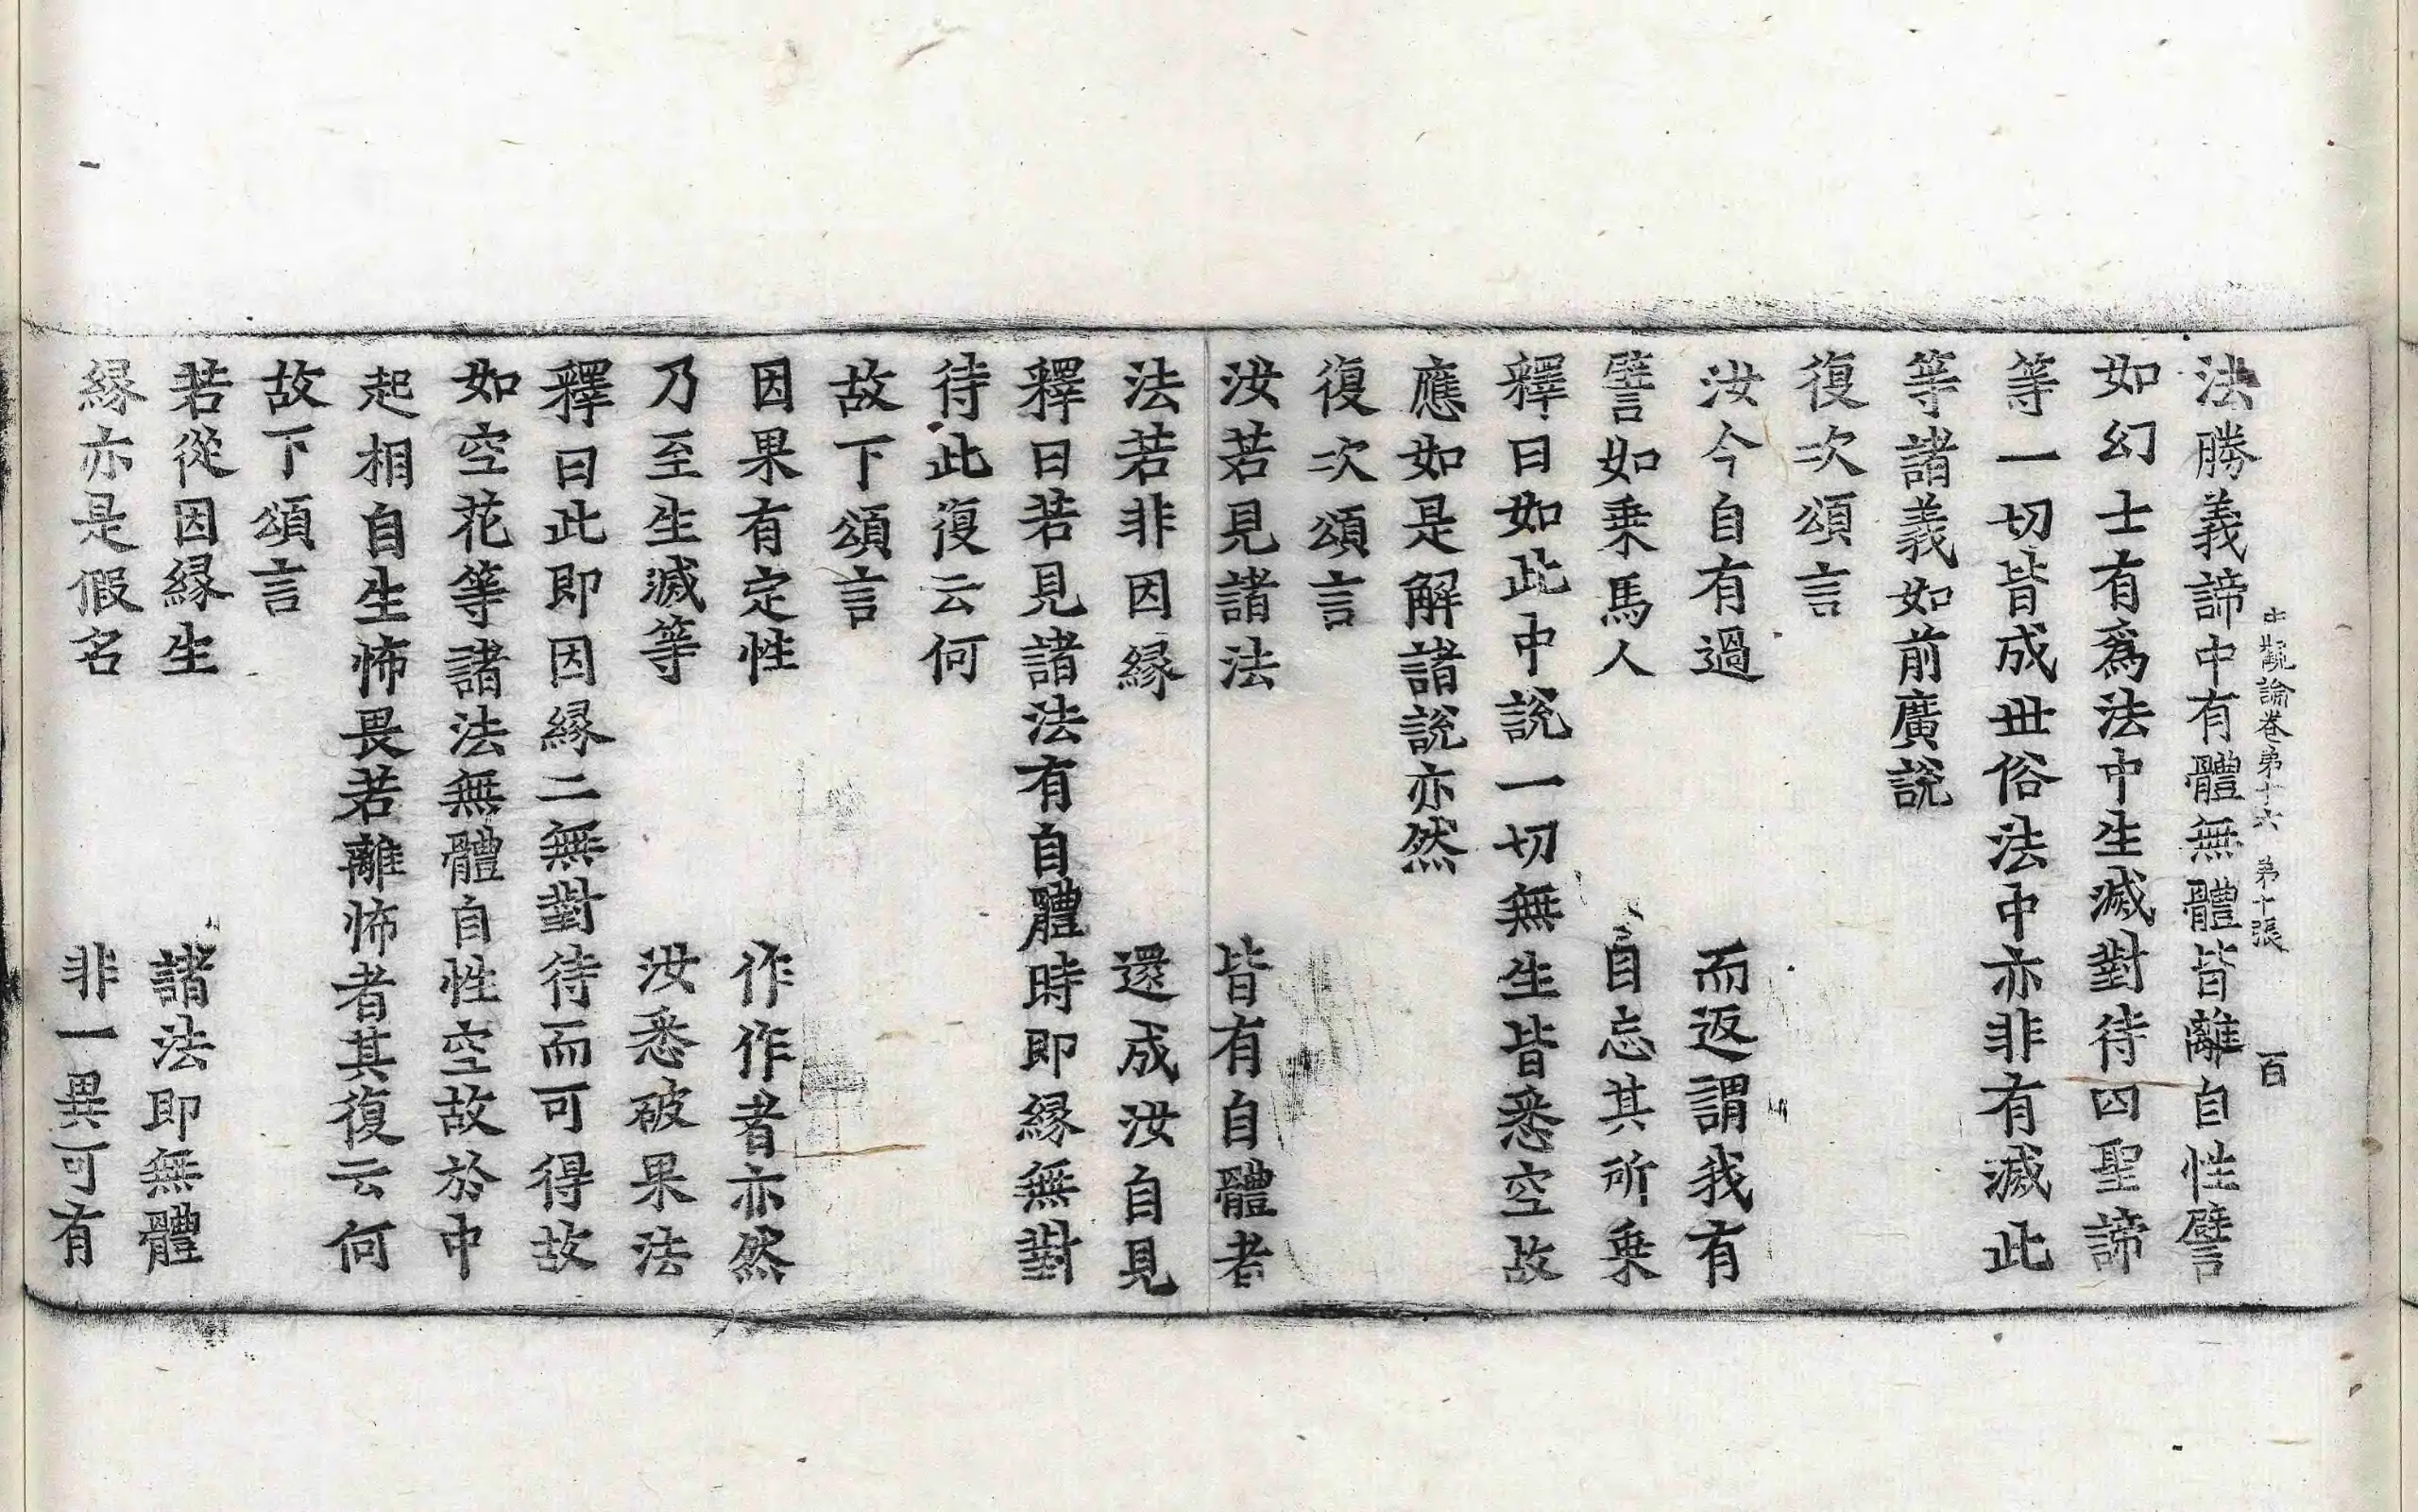 中觀論卷第十六　第十張　百
法勝義諦中有體無體皆離自性譬
如幻士有為法中生滅對待四聖諦
等一切皆成世俗法中亦非有滅此
等諸義如前廣說
復次頌言
汝今自有過　而返謂我有
譬如乘馬人　自忘其所乘
釋曰如此中說一切無生皆悉空故
應如是解諸說亦然
復次頌言
汝若見諸法　皆有自體者
法若非因緣　還成汝自見
釋曰若見諸法有自體時即緣無對
待此復云何
故下頌言
因果有定性　作作者亦然
乃至生滅等　汝悉破果法
釋曰此即因緣二無對待而可得故
如空花等諸法無體自性空故於中
起相自生怖畏若離怖者其復云何
故下頌言
若從因緣生　諸法即無體
緣亦是假名　非一異可有